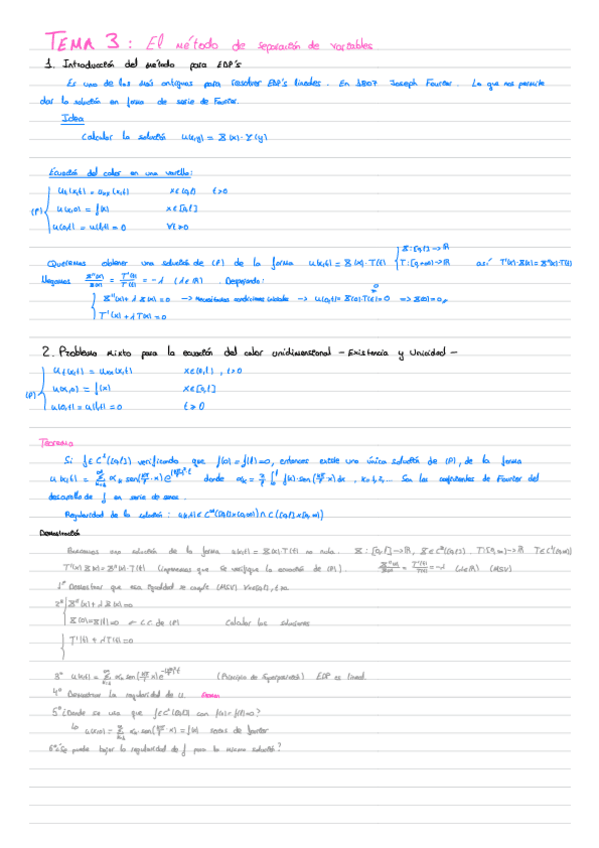 TEMA 3: El método de separación de variables
1. Introducción del método para EDP's
Es uno de los más antiguos para resolver EDP's lineales. En 1807 Joseph Fourier. Lo que nos permite
dar la solución en forma de serie de Fourier.
Idea
Calcular la solución u(x,y) = X(x)·Y(y)
Ecuación del calor en una varilla:
(P) { ut(x,t) = uxx(x,t) x∈(0,l) t>0
u(x,0) = f(x) x∈[0,l]
u(0,t) = u(l,t) = 0 ∀t>0
Queremos obtener una solución de (P) de la forma u(x,t) = X(x)·T(t) { X: [0,l] → ℝ T: [0,+∞) → ℝ así T'(t)·X(x) = X''(x)·T(t)
llegamos X''(x)/X(x) = T'(t)/T(t) = -λ (λ∈ℝ). Despejando:
{ X''(x) + λ X(x) = 0 → Necesitamos condiciones → u(0,t) = X(0)·T(t) = 0 => X(0) = 0
T'(x) + λT(x) = 0
2. Problema mixto para la ecuación del calor unidimensional - Existencia y Unicidad -
(P) { ut(x,t) = uxx(x,t) x∈(0,l), t>0
u(x,0) = f(x) x∈[0,l]
u(0,t) = u(l,t) = 0 t≥0
Teorema
Si f∈C¹([0,l]) verificando que f(0) = f(l) = 0, entonces existe una única solución de (P), de la forma
donde k=1,2,... Son los coeficientes de Fourier del
desarrollo de f en serie de senos.
Regularidad de la solución:
Demostración
Buscamos una solución de la forma u(x,t) = X(x)·T(t) no nula.
T'(t)·X(x) = X''(x)·T(t) (Imponemos que se verifique la ecuación de (P)). X''(x)/X(x) = T'(t)/T(t) = -λ (λ∈ℝ) (MSV)
1º Demostrar que esa igualdad se cumple (MSV) ∀x∈(0,l), t>0
2º { X''(x) + λX(x) = 0
X(0) = X(l) = 0 ← C.C. de (P) Calcular las soluciones
{ T'(t) + λT(t) = 0
3º (Principio de Superposición) EDP es lineal
4º Demostrar la regularidad de u.
5º ¿Dónde se usa que f∈C¹([0,l]) con f(0) = f(l) = 0?
series de fourier
6º ¿Se puede bajar la regularidad de f para la misma solución?